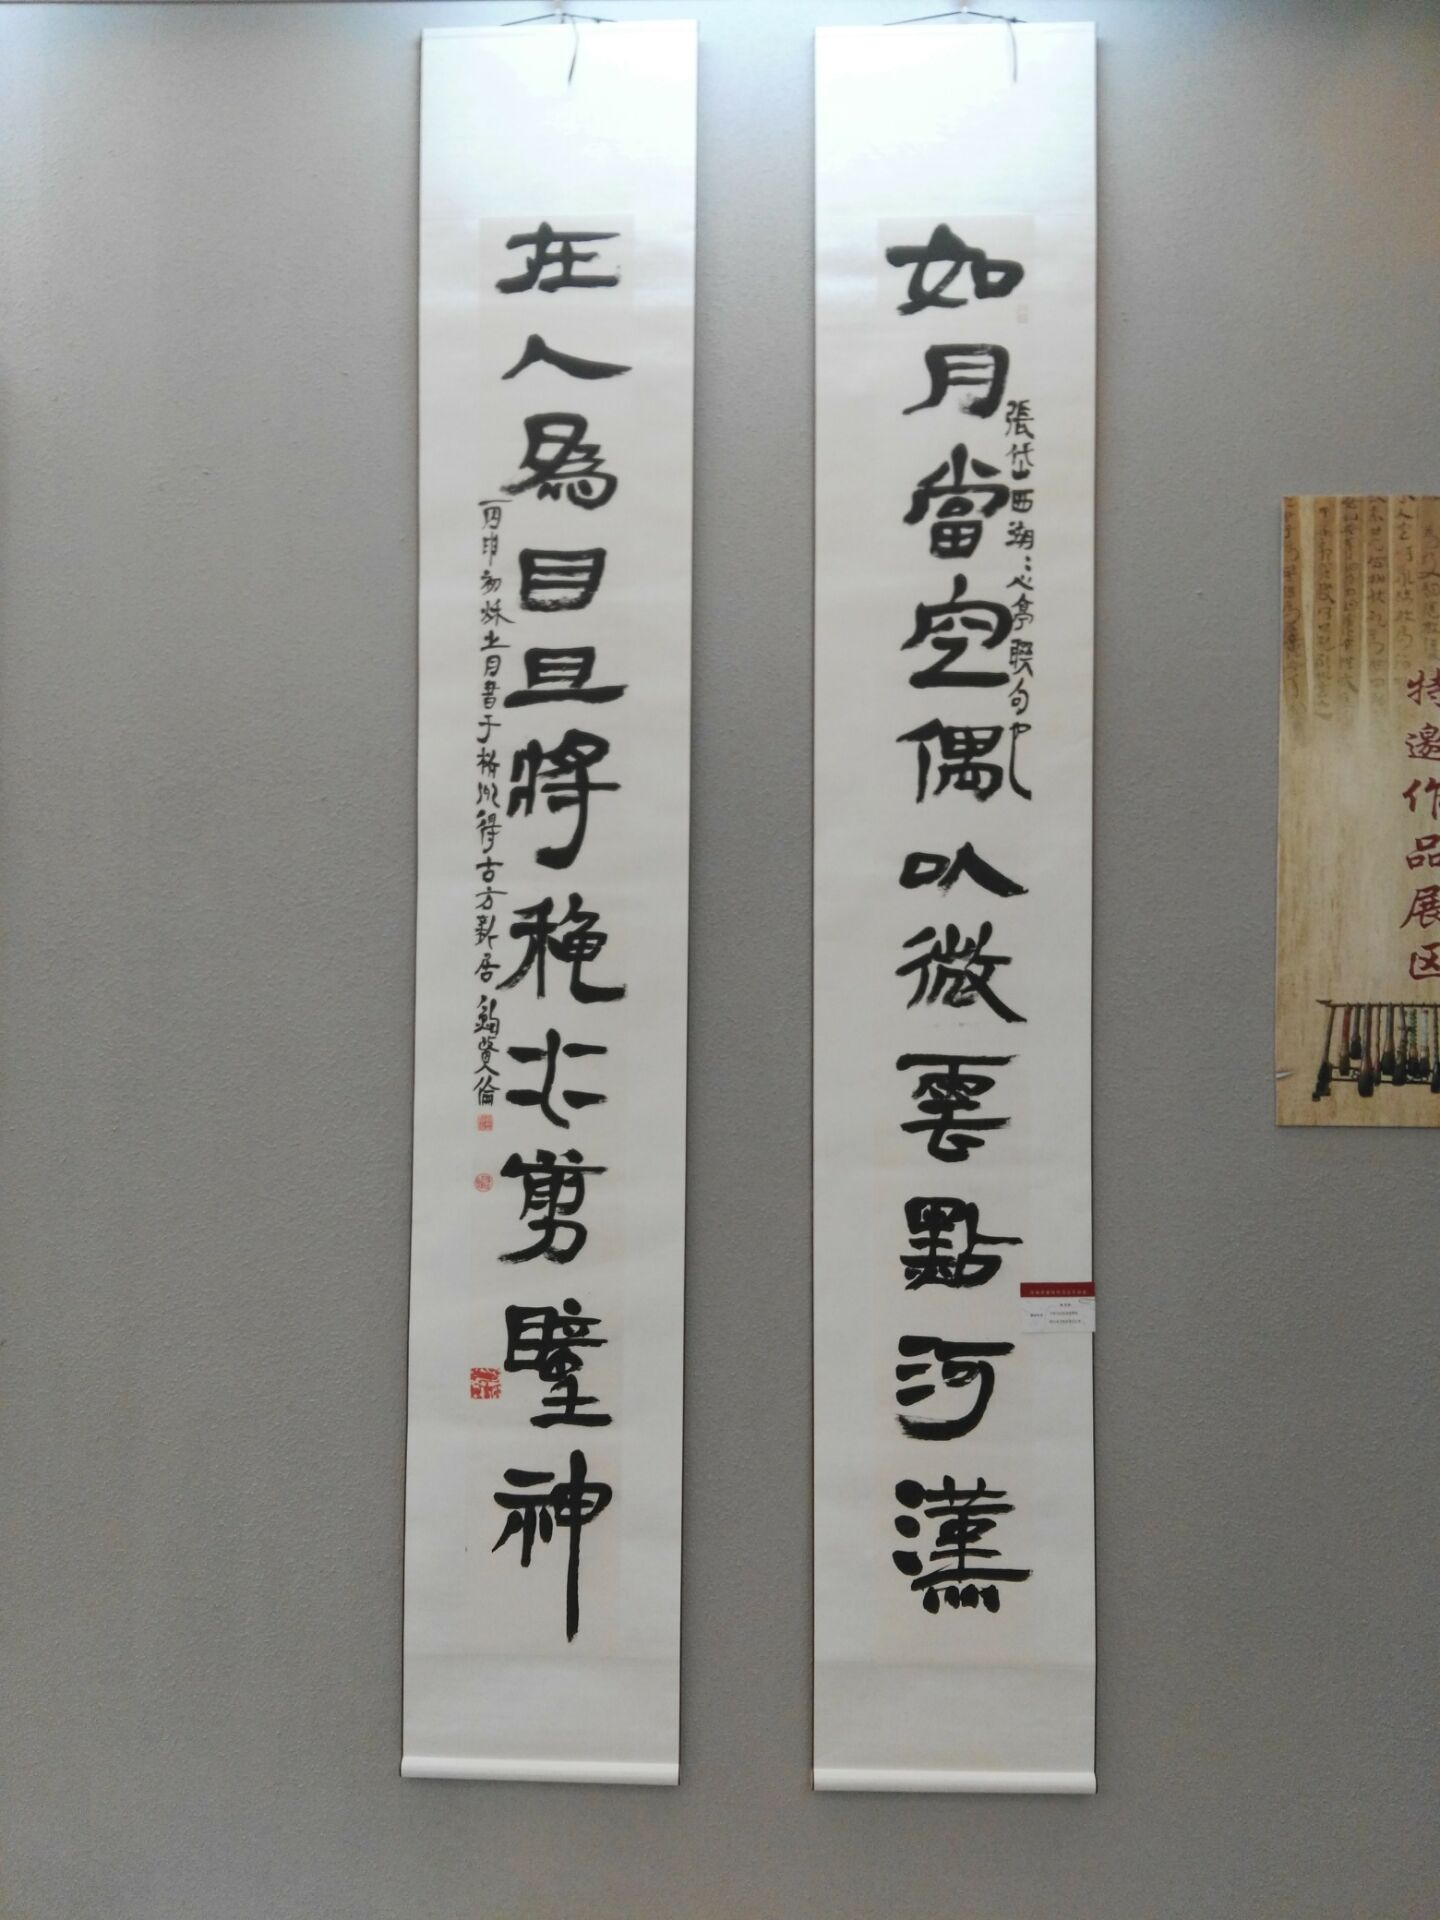 如月當空偶以微雲點河漢
張岱西湖湖心亭聯句也
在人為目且將秋水剪瞳神
丙申初秋之月書于格
得古方新居
特邀作品展区